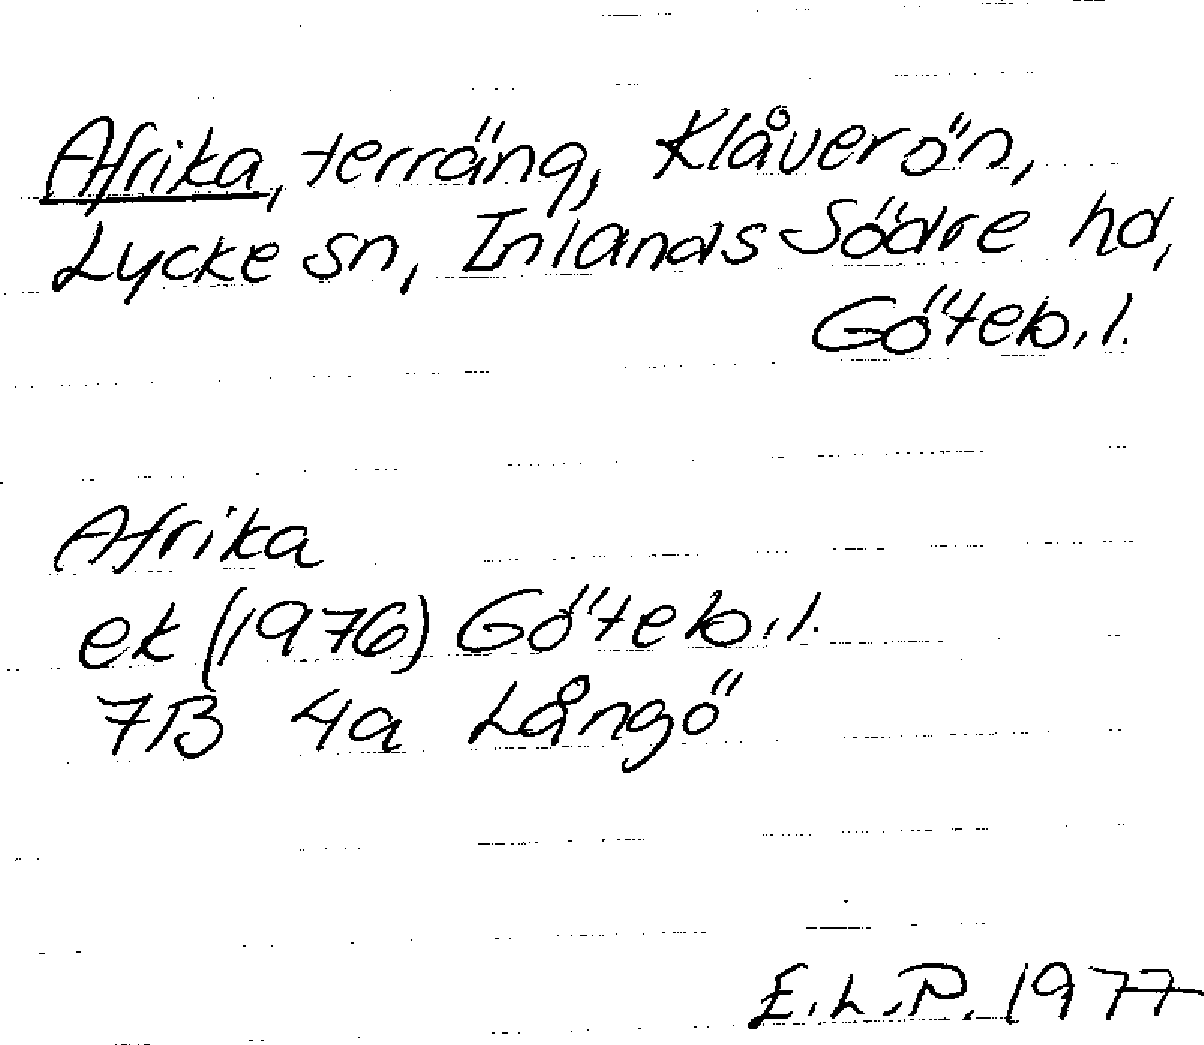 Afrika, terräng, Klåverön,
Lycke sn, Inlands Södre hd,
Göteb.l.
Afrika
ek (1976) Göteb.l.
7B 4a Långö
E.L.P. 1977